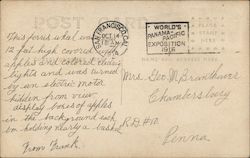 POST CARD
SAN FRANCISCO, CAL.
OCT 14
WORLD'S
PANAMA-PACIFIC
EXPOSITION
1915
This ferris wheel was
12 feet high covered
apples and colored electric
lights and was turned
by an electric motor
hidden from view
display boxes of apples
in the background each
box holding nearly a bushel
From Frank.
Mrs. Geo. M.
Chambersburg
R.D. #10.
Penna